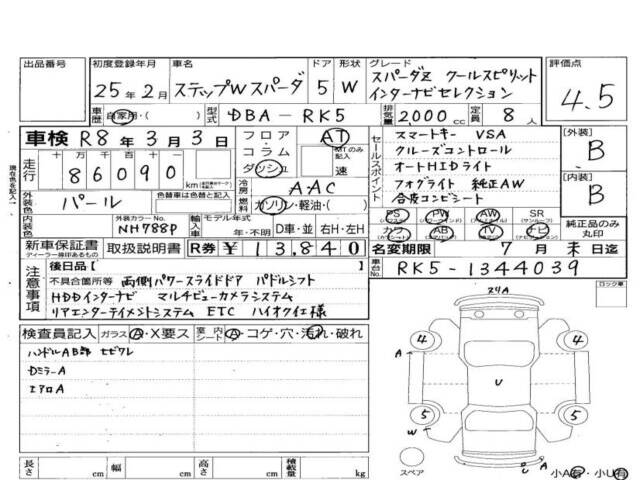 出品番号
初度登録年月
25年2月
車名
ステップWスパーダ
ドア
5
形状
W
グレード
スパーダZ クールスピリット
インターナビセレクション
評価点
4.5
車歴
自家用・( )
型式
DBA-RK5
排気量
2000 cc
定員
8人
車検 R8年3月3日
走行
十万 万 千 百 十 一
86090
km
外装色
パール
色替車は色替と記入
外装カラーNo.
NH788P
モデル年式
年・不明
D車・並
右H・左H
フロア
コラム
ダッシュ
AT
MTのみ記入
速
冷房
AAC
燃料
ガソリン・軽油・( )
セールスポイント
スマートキー VSA
クルーズコントロール
オートHIDライト
フォグライト 純正AW
合皮コンビシート
PS
PW
AW
SR
(サンルーフ)
カワ
AB
TV
ナビ
[外装]
B
[内装]
B
純正品のみ
丸印
新車保証書
ディーラー捺印あるもの
取扱説明書
R券 ¥13,840
名変期限 7月末日迄
車台No.
RK5-1344039
注意事項
後日品[ ]
不具合箇所等 両側パワースライドドア パドルシフト
HDDインターナビ マルチビューカメラシステム
リアエンターテイメントシステム ETC ハイオクイエ様
検査員記入
ガラス A・X要ス
室内シート A・コゲ・穴・汚れ・破れ
ハンドルAB部 ヒビワレ
DミラーA
エアロA
ロック車
スリA
4
4
A
U
5
5
W
U
A
スペア
小A有・小U有
長さ cm
幅 cm
高さ cm
積載量 kg
現在色を記入